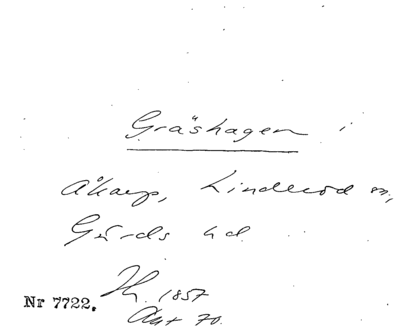 Gräshagen i
Åkarp, Linderöd sn,
Gärds hd.
Nr 7722.
1857
Akt 70.